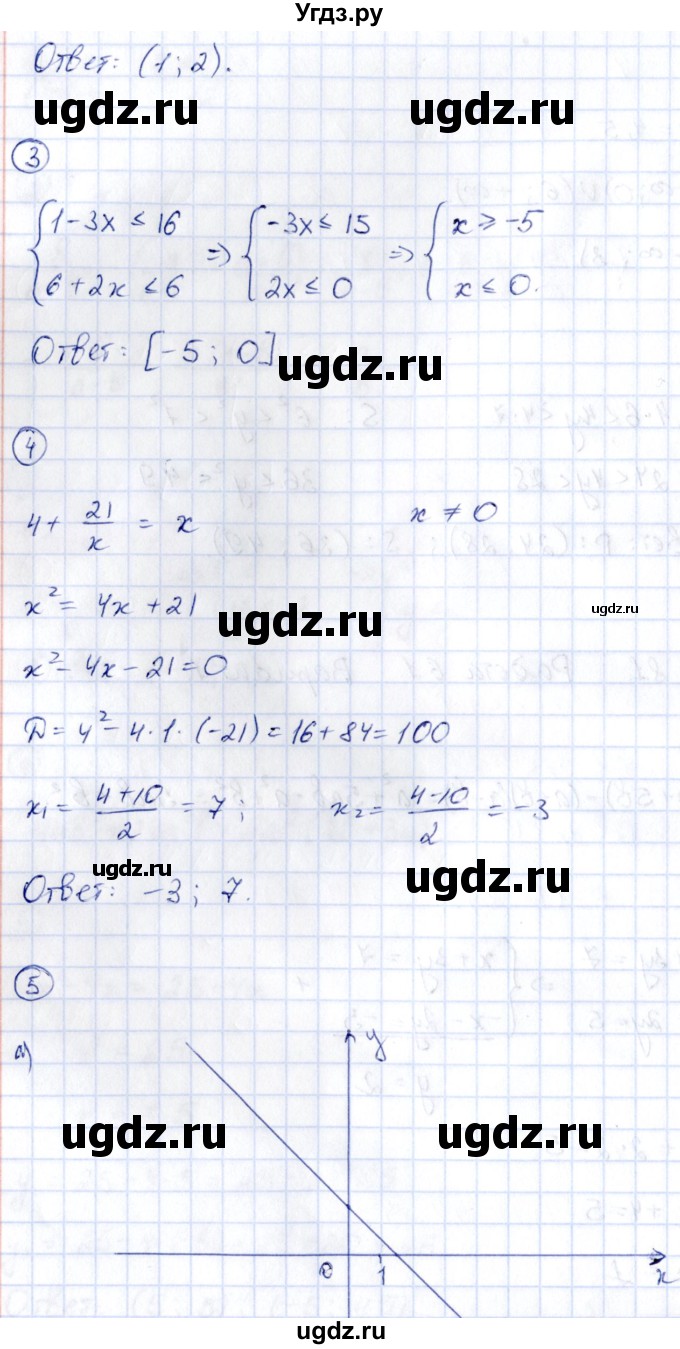 Угдз.ру
Ответ: (1; 2).
ugdz.ru ugdz.ru
3
{1-3x ≤ 16 => {-3x ≤ 15 => {x ≥ -5
{6+2x ≤ 6 {2x ≤ 0 {x ≤ 0.
Ответ: [-5; 0]
ugdz.ru
4
4 + 21/x = x x ≠ 0
x² = 4x + 21
ugdz.ru ugdz.ru
x² - 4x - 21 = 0
Д = 4² - 4·1·(-21) = 16 + 84 = 100
x₁ = (4+10)/2 = 7; x₂ = (4-10)/2 = -3
ugdz.ru ugdz.ru
Ответ: -3; 7.
5
а) y
ugdz.ru ugdz.ru
0 1 x
ugdz.ru